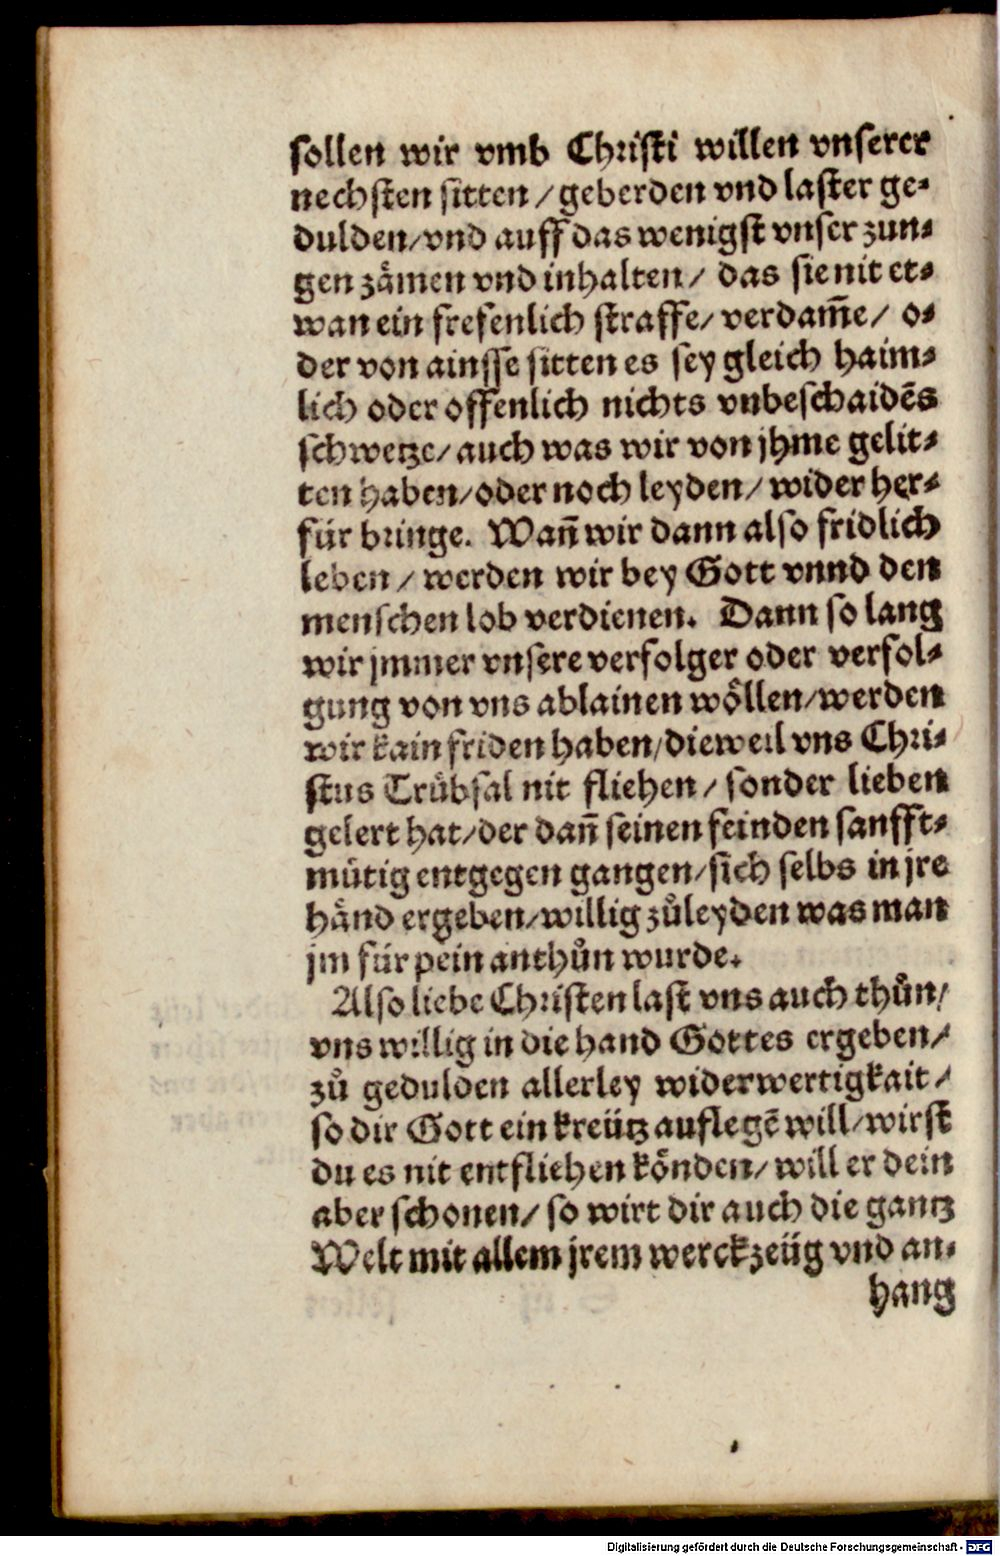 sollen wir vmb Christi willen vnserer
nechsten sitten / geberden vnd laster ge⸗
dulden/vnd auff das wenigst vnser zun⸗
gen zåmen vnd inhalten/ das sie nit et⸗
wan ein frefenlich straffe/ verdam̄e/ o⸗
der von ainsse sitten es sey gleich haim⸗
lich oder offenlich nichts vnbeschaidēs
schwetze/ auch was wir von jhme gelit⸗
ten haben/oder noch leyden/ wider her⸗
für bringe. Wan̄ wir dann also fridlich
leben / werden wir bey Gott vnnd den
menschen lob verdienen. Dann so lang
wir jmmer vnsere verfolger oder verfol⸗
gung von vns ablainen wöllen/werden
wir kain friden haben/dieweil vns Chri⸗
stus Trübsal nit fliehen / sonder lieben
gelert hat/der dan̄ seinen feinden sanfft⸗
mütig entgegen gangen/sich selbs in jre
händ ergeben/willig zůleyden was man
jm für pein anthůn wurde.
Also liebe Christen last vns auch thůn/
vns willig in die hand Gottes ergeben/
zů gedulden allerley widerwertigkait/
so dir Gott ein kreütz auflegē will/wirst
du es nit entfliehen könden/ will er dein
aber schonen/ so wirt dir auch die gantz
Welt mit allem jrem werckzeüg vnd an⸗
hang
Digitalisierung gefördert durch die Deutsche Forschungsgemeinschaft - DFG